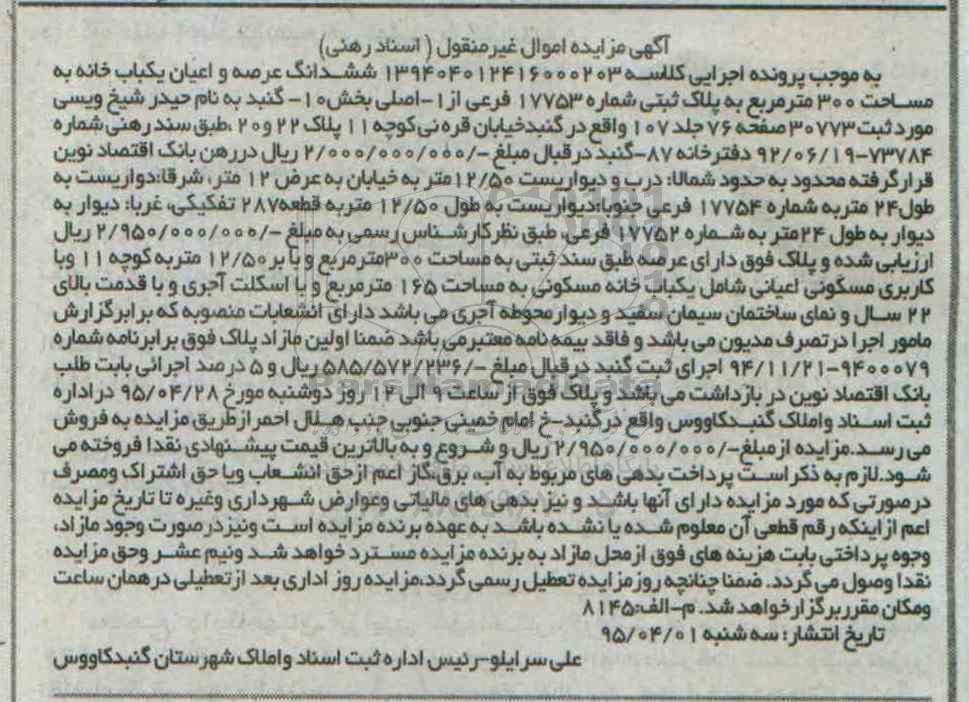 آگهی مزایده اموال غیرمنقول ( اسناد رهنی)
به موجب پرونده اجرایی کلاسه ۱۳۹۴۰۴۰۱۲۴۱۶۰۰۰۲۰۳ ششدانگ عرصه و اعیان یکباب خانه به
مساحت ۳۰۰ مترمربع به پلاک ثبتی شماره ۱۷۷۵۳ فرعی از۱-اصلی بخش۱۰- گنبد به نام حیدر شیخ ویسی
مورد ثبت ۳۰۷۷۳ صفحه ۷۶ جلد ۱۰۷ واقع در گنبدخیابان قره نی کوچه ۱۱ پلاک ۲۲ و ۲۰ ،طبق سند رهنی شماره
۷۳۷۸۴-۹۲/۰۶/۱۹ دفترخانه ۸۷-گنبد در قبال مبلغ -/۲/۰۰۰/۰۰۰/۰۰۰ ریال دررهن بانک اقتصاد نوین
قرارگرفته محدود به حدود شمالا: درب و دیواریست ۱۲/۵۰متر به خیابان به عرض ۱۲ متر، شرقا:دواریست به
طول۲۴ متربه شماره ۱۷۷۵۴ فرعی جنوبا:دیواریست به طول ۱۲/۵۰ متربه قطعه۲۸۷ تفکیکی، غربا: دیوار به
دیوار به طول ۲۴متر به شماره ۱۷۷۵۲ فرعی، طبق نظرکارشناس رسمی به مبلغ -/۲/۹۵۰/۰۰۰/۰۰۰ ریال
ارزیابی شده و پلاک فوق دارای عرصه طبق سند ثبتی به مساحت ۳۰۰مترمربع و با بر ۱۲/۵۰ متربه کوچه ۱۱ وبا
کاربری مسکونی اعیانی شامل یکباب خانه مسکونی به مساحت ۱۶۵ مترمربع و با اسکلت آجری و با قدمت بالای
۲۲ سال و نمای ساختمان سیمان سفید و دیوارمحوطه آجری می باشد دارای انشعابات منصوبه که برابرگزارش
مامور اجرا درتصرف مدیون می باشد و فاقد بیمه نامه معتبرمی باشد ضمنا اولین مازاد پلاک فوق برابرنامه شماره
۹۴۰۰۰۷۹-۹۴/۱۱/۲۱ اجرای ثبت گنبد درقبال مبلغ -/۵۸۵/۵۷۲/۲۳۶ ریال و ۵ درصد اجرائی بابت طلب
بانک اقتصاد نوین در بازداشت می باشد و پلاک فوق از ساعت ۹ الی ۱۲ روز دوشنبه مورخ ۹۵/۰۴/۲۸ دراداره
ثبت اسناد واملاک گنبدکاووس واقع درگنبد-خ امام خمینی جنوبی جنب هلال احمرازطریق مزایده به فروش
می رسد.مزایده ازمبلغ-/۲/۹۵۰/۰۰۰/۰۰۰ ریال و شروع و به بالاترین قیمت پیشنهادی نقدا فروخته می
شود.لازم به ذکراست پرداخت بدهی های مربوط به آب، برق،گاز اعم ازحق انشعاب ویا حق اشتراک ومصرف
درصورتی که مورد مزایده دارای آنها باشد و نیز بدهی های مالیاتی وعوارض شهرداری وغیره تا تاریخ مزایده
اعم ازاینکه رقم قطعی آن معلوم شده یا نشده باشد به عهده برنده مزایده است ونیزدرصورت وجود مازاد،
وجوه پرداختی بابت هزینه های فوق ازمحل مازاد به برنده مزایده مسترد خواهد شد ونیم عشر وحق مزایده
نقدا وصول می گردد. ضمنا چنانچه روز مزایده تعطیل رسمی گردد،مزایده روز اداری بعد ازتعطیلی درهمان ساعت
ومکان مقرربرگزارخواهد شد. م-الف:۸۱۴۵
تاریخ انتشار: سه شنبه ۹۵/۰۴/۰۱
علی سرایلو-رئیس اداره ثبت اسناد واملاک شهرستان گنبدکاووس